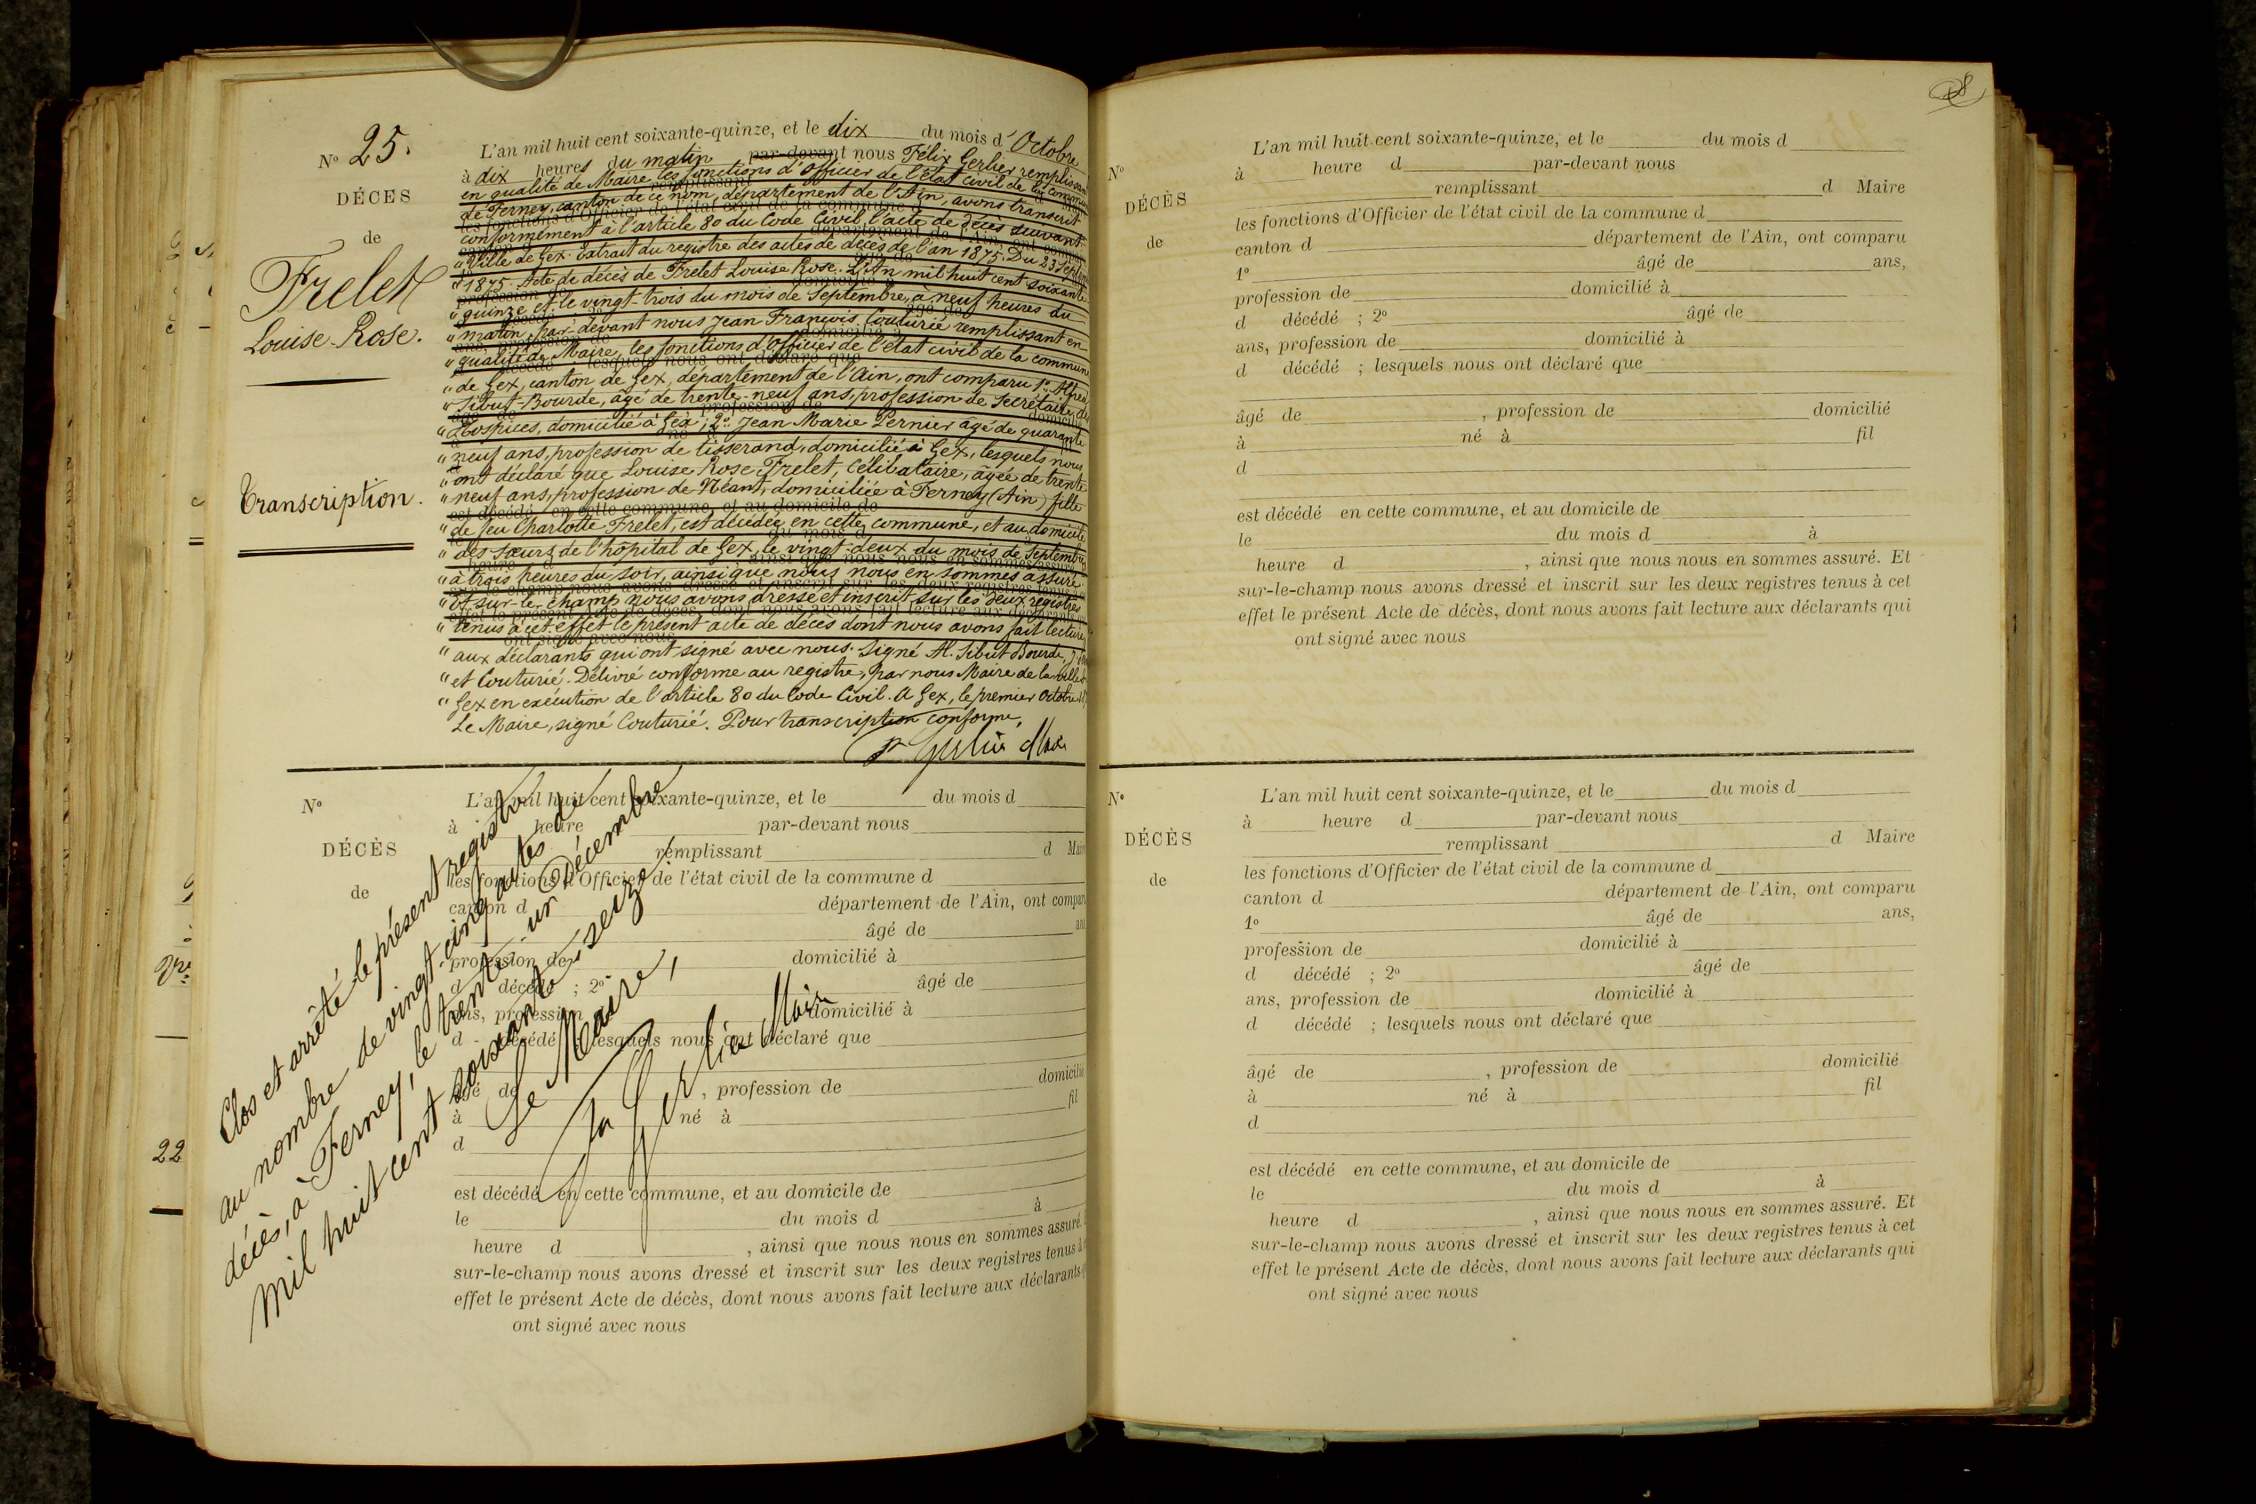 N° 25.
DÉCES
de
Frelet
Louise-Rose.
Transcription.
L'an mil huit cent soixante-quinze, et le dix du mois d'Octobre
à dix heures du matin par-devant nous Félix Gerlier remplissant
en qualité de Maire les fonctions d'officier de l'état civil de la commune
de Ferney, canton de ce nom, département de l'Ain, avons transcrit
conformément à l'article 80 du Code Civil, l'acte de décès suivant:
"Ville de Gex. Extrait du registre des actes de décès de l'an 1875. Du 23 Septembre
"1875. Acte de décès de Frelet Louise Rose. L'An mil huit cent soixante
"quinze et le vingt-trois du mois de Septembre, à neuf heures du
"matin, par-devant nous Jean François Couturié remplissant en
"qualité de Maire, les fonctions d'officier de l'état civil de la commune
"de Gex, canton de Gex, département de l'Ain, ont comparu 1° Alfred
"Sibut-Bourde, âgé de trente-neuf ans, profession de Secrétaire des
"Hospices, domicilié à Gex; 2° Jean Marie Pernier âgé de quarante
"neuf ans, profession de tisserand, domicilié à Gex, lesquels nous
"ont déclaré que Louise Rose Frelet, Célibataire, âgée de trente
"neuf ans, profession de Néant, domiciliée à Ferney (Ain) fille
"de feu Charlotte Frelet, est décédée en cette commune, et au domicile
"des sœurs de l'hôpital de Gex, le vingt-deux du mois de Septembre
"à trois heures du soir, ainsi que nous nous en sommes assuré.
"Et sur-le-champ nous avons dressé et inscrit sur les deux registres
"tenus à cet effet le présent acte de décès dont nous avons fait lecture
"aux déclarants qui ont signé avec nous. Signé Al. Sibut Bourde,
"et Couturié. Délivré conforme au registre, par nous Maire de la ville de
"Gex en exécution de l'article 80 du Code Civil. A Gex, le premier Octobre
Le Maire, signé Couturié. Pour transcription conforme,
Gerlier Maire
N°
DÉCÈS
de
L'an mil huit cent soixante-quinze, et le du mois d
à heure par-devant nous
remplissant d Maire
les fonctions d'Officier de l'état civil de la commune d
canton d département de l'Ain, ont comparu
âgé de ans
profession de domicilié à
d décédé ; 2° âgé de
ans, profession domicilié à
d décédé ; lesquels nous ont déclaré que
âgé de , profession de domicilié
à né à fil
d
est décédé en cette commune, et au domicile de
le du mois d à
heure d , ainsi que nous nous en sommes assuré.
sur-le-champ nous avons dressé et inscrit sur les deux registres tenus à
effet le présent Acte de décès, dont nous avons fait lecture aux déclarants
ont signé avec nous
Clos et arrêté le présent registre
au nombre de vingt cinq actes de
décès, à Ferney, le trente-un Décembre
mil huit cent soixante seize.
Le Maire,
Gerlier Maire
22
N°
DÉCÈS
de
L'an mil huit cent soixante-quinze, et le du mois d
à heure d par-devant nous
remplissant d Maire
les fonctions d'Officier de l'état civil de la commune d
canton d département de l'Ain, ont comparu
1° âgé de ans,
profession de domicilié à
d décédé ; 2° âgé de
ans, profession de domicilié à
d décédé ; lesquels nous ont déclaré que
âgé de , profession de domicilié
à né à fil
d
est décédé en cette commune, et au domicile de
le du mois d à
heure d , ainsi que nous nous en sommes assuré. Et
sur-le-champ nous avons dressé et inscrit sur les deux registres tenus à cet
effet le présent Acte de décès, dont nous avons fait lecture aux déclarants qui
ont signé avec nous
N°
DÉCÈS
de
L'an mil huit cent soixante-quinze, et le du mois d
à heure d par-devant nous
remplissant d Maire
les fonctions d'Officier de l'état civil de la commune d
canton d département de l'Ain, ont comparu
1° âgé de ans,
profession de domicilié à
d décédé ; 2° âgé de
ans, profession de domicilié à
d décédé ; lesquels nous ont déclaré que
âgé de , profession de domicilié
à né à fil
d
est décédé en cette commune, et au domicile de
le du mois d à
heure d , ainsi que nous nous en sommes assuré. Et
sur-le-champ nous avons dressé et inscrit sur les deux registres tenus à cet
effet le présent Acte de décès, dont nous avons fait lecture aux déclarants qui
ont signé avec nous